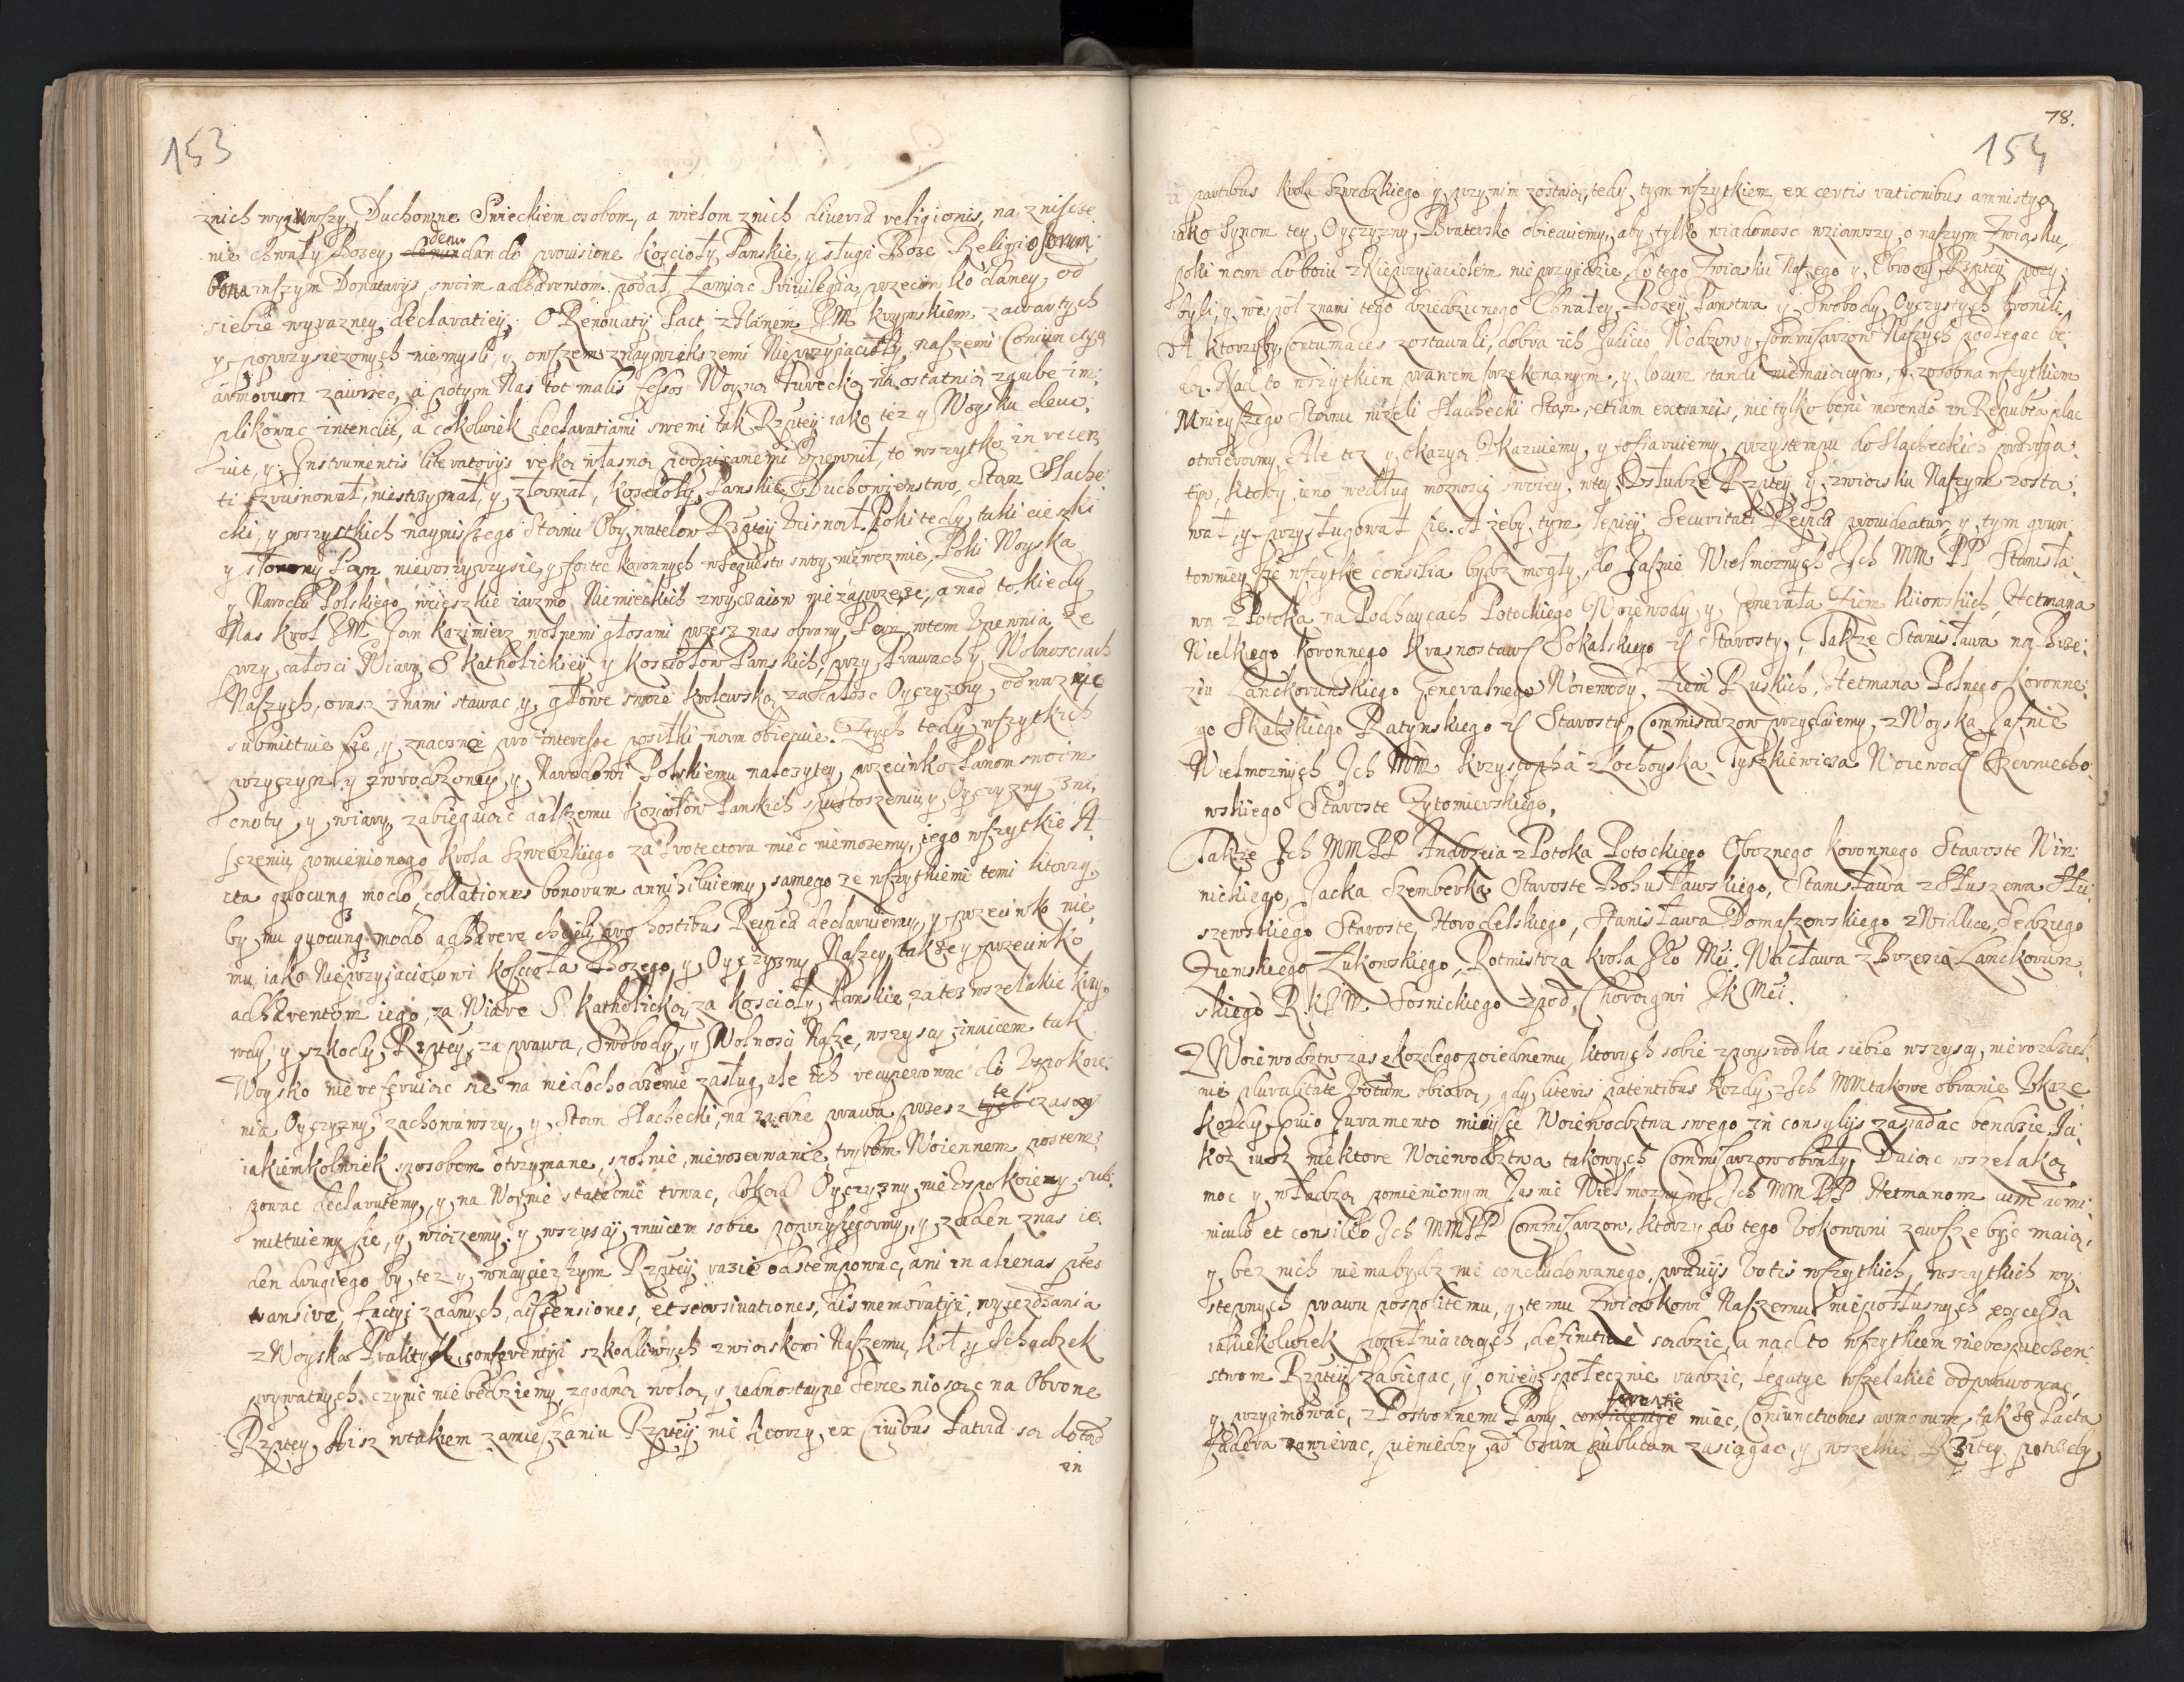 153
znich wyzuwszy, Duchowne Swieckiem osobom, a wielom znich diversa religionis, na znisce:
nie chwały Bozey, denudando prowisione Koscioły Panskie, y sługi Boze Religiosorum
bona inszym Donatarijs, swoim adhaerentom podał, Łamiąc Privilegia przeciw ko daney od
siebie wyrazney declaratiey, O Renovatij Pact z Hanem JM. Krymskiem zawartych
y poprzysięzonych nie mysli, y owszem z naywiększemi Nieprzyiacioły naszemi Coniunctyą
armorum zawrzec, a potym Nas tot malis fessos Woyną Turecką na ostatnią zgube im:
plikowac intendit, a cokolwiek declaratiami swemi tak Rzptey iako tez y Woysku devo:
vit, y Instrumentis literatorijs ręką własną podpisanemi Vpewnił, to wszytko in recen
ti zruinował, nie strzymał, y złomał, Koscioły Panskie Duchowienstwo, Stan Slache:
cki, y wszystkich naynisszego Stanu Obywatelow Rzptey Vcisnął. Poki tedy taki cieszki
y słowny Pan nieroszyrzy sie, y fortec koronnych w sequestr swoy niewezmie, Poki Woyska
y Narodu Polskiego w cieszkie iarzmo Niemieckich zwyczaiow nie zaprzeze, a nad to, kiedy
Nas Krol JM. Jan Kazimierz wolnemi głosami przesz nas obrany Pan, w tem Vpewnia ze
przy całosci Wiary S. Katholickiey y Kosciołow Panskich, przy Prawach y Wolnosciach
Naszych, orasz z nami stawac, y głowe swoie krolewską za Całosc Oyczyzny odwazyc
submittuie sie, y znaczne pro interesse posiłki nam obiecuie. Z tych tedy wszytkich
przyczyn y z wrodzoney, y Narodowi Polskiemu nalezytey przeciwko Panom swoim
cnoty y wiary, zabiegaiąc dalszemu Kosciołow Panskich spustoszeniu y Oyczyzny zni:
szczeniu, pomienionego Krola Szwedzkiego za Protectora miec niemozemy, iego wszytkie A:
cta quocunq modo, collationes bonorum annihiluiemy, samego ze wszytkiemi temi ktorzy
by mu quocunq modo adhaerere chcieli pro hostibus Reipcae declaruiemy, y przeciwko nie:
mu, iako Nieprzyiacielowi Koscioła Bozego, y Oyczyzny Naszey, takze y przeciwko
adhaerentom iego, za Wiare S. Katholicką, za Koscioły Panskie, za tez wszelakie krzy:
wdy y szkody Rzptey, za prawa, Swobody, y Wolnosci Nasze, wszyscy invicem tak
Woysko niereferuiąc sie na niedochodzenie zasług, ale ich recuperowac do Vspokoie:
nia Oyczyzny, zachowawszy, y Stan Slachecki, na zacne prawa przesz te czasy
iakiemkolwiek sposobem otrzymane, społnie, nierozerwanie, trybem Woiennem postem:
powac declaruiemy, y na Woynie statecznie trwac, dokąd Oyczyzny nie Vspokoiemy, sub:
mittuiemy sie, y wiązemy, y wszyscy invicem sobie poprzysięgamy, y zaden z nas ie:
den drugiego, by tez y w nayciezszym Rzptey razie odstempowac, ani in alienas ptes
transire, factyi zadnych, dissensiones, et seorsivationes, dismembratiji, wyiezdzania
z Woyska Praktyk, conferentyi szkodliwych zwiąskowi Naszemu, koł, y Schadzek
prywatnych czynic niebędziemy, zgodną wolą, y iednostayne Serce niosąc na Obrone
Rzptey. Aisz w takiem zamieszaniu Rzptey nie ktorzy ex Civibus Patriae są dotąd
in
78.
154
in partibus Krola Szwedzkiego y przynim zostaią, tedy tym wszytkiem ex certis rationibus amnistyą
iako Synom tey Oyczyzny, Bratersko obiecuiemy, aby tylko wiadomosc wziąwszy o naszym Zwiąsku,
poki nam do boiu z Nieprzyiacielem nieprzyidzie, do tego Zwiasku Naszego y Obrony Rzptey przy:
byli, y wespoł z nami tego dziedzicznego Chwałey Bozey, Panstwa y Swobody Oyczystych bronili.
A ktorziby Contumaces zostawali, dobra ich Judicio Wodzow y Commissarzow Naszych podlegac bę:
dą. Nad to wszytkiem prawem przekonanym, y locum standi niemaiącym, y zosobna wszytkiem
Mnieyszego Stanu nizeli Slachecki Stan, etiam extraneis, nie tylko bene merendo in Republca plac
otwieramy, Ale tez y okazyą Vkazuiemy, y ofiaruiemy, przystempu do Slacheckich praeroga:
tiw, ktoby ieno według moznosci swoiey, w tey Vsłudze Rzptey y zwiasku Naszym zosta:
wał, y przysługował sie. A zeby tym lepiey Securitati Reipcae provideatur, y tym grun:
towniey sze wszytkie consilia bydz mogły, do Jasnie Wielmoznych Ich MM PP Stanisła:
wa z Potoka na Podhaycach Potockiego Woiewody y Generała Ziem Kiiowskich, Hetmana
Wielkiego Koronnego Krasnostaw Sokalskiego Starosty, Takze Stanisława na Brze:
ziu Lanckorunskiego Generalnego Woiewody Ziem Ruskich, Hetmana Polnego Koronne:
go Skalskiego Ratynskiego Starosty, Commissarzow przydaiemy, z Woyska Jasnie
Wielmoznych Ich MM Krzysztopha z Łochoyska Tyszkiewicza Woiewod Czerniecho:
wskiego Staroste Zytomierskiego,
Takze Ich MM PP Andrzeia z Potoka Potockiego Oboznego koronnego Staroste Win:
nickiego, Jacka Szemberka Staroste Bohusławskiego, Stanisława z Słuszewa Słu:
szewskiego Staroste Horodelskiego, Stanisława Domaszewskiego z Widlice, Sedziego
Ziemskiego Łukowskiego, Rotmistrza Krola Jeo Mci, Wacława z Brzezia Lanckorun:
skiego R. K. J. M. Sosnickiego z pod Chorągwi JK Mci.
Z Woiewodztw zas z kozdego poiednemu, ktorych sobie zposrodka siebie wszyscy, nierozdziel:
nie pluralitate Votum obiorą, gdy literis patentibus kozdy z Ich MM takowe obranie Vkaze
kozdy, pvio Juramento mieysce Woiewodztwa swego in consylijs zasiadac bendzie, Ja:
kosz iusz niektore Woiewodztwa takowych Commissarzow obrały, Daiąc wszelaką
moc y władzą pomienionym Jasnie Wielmoznym Ich MM PP Hetmanom cum admi:
niculo et consilio Ich MMPP Commissarzow, ktorzy do tego Vokowani zawsze byc maią,
y bez nich niema bydz nic concludowanego, praevijs Votis wszytkich, wszytkich wy:
stepnych prawu pospolitemu, y temu Zwiąskowi Naszemu nieposłusznych, excessa
iakiekolwiek popełniaiących, definitive sądzic, a nad to wszytkiem niebespieczen:
stwom Rzptey zabiegac, y oniey społecznie radzic, legatye wszelakie odprawowac,
y przyimowac, z Postronnemi Pany conferentie miec, Coniunctiones armorum, takze Pacta
Faedera zawierac, pieniedzy ad Vsum publicum zasiągac, y wszelkie Rzptey potrzeby